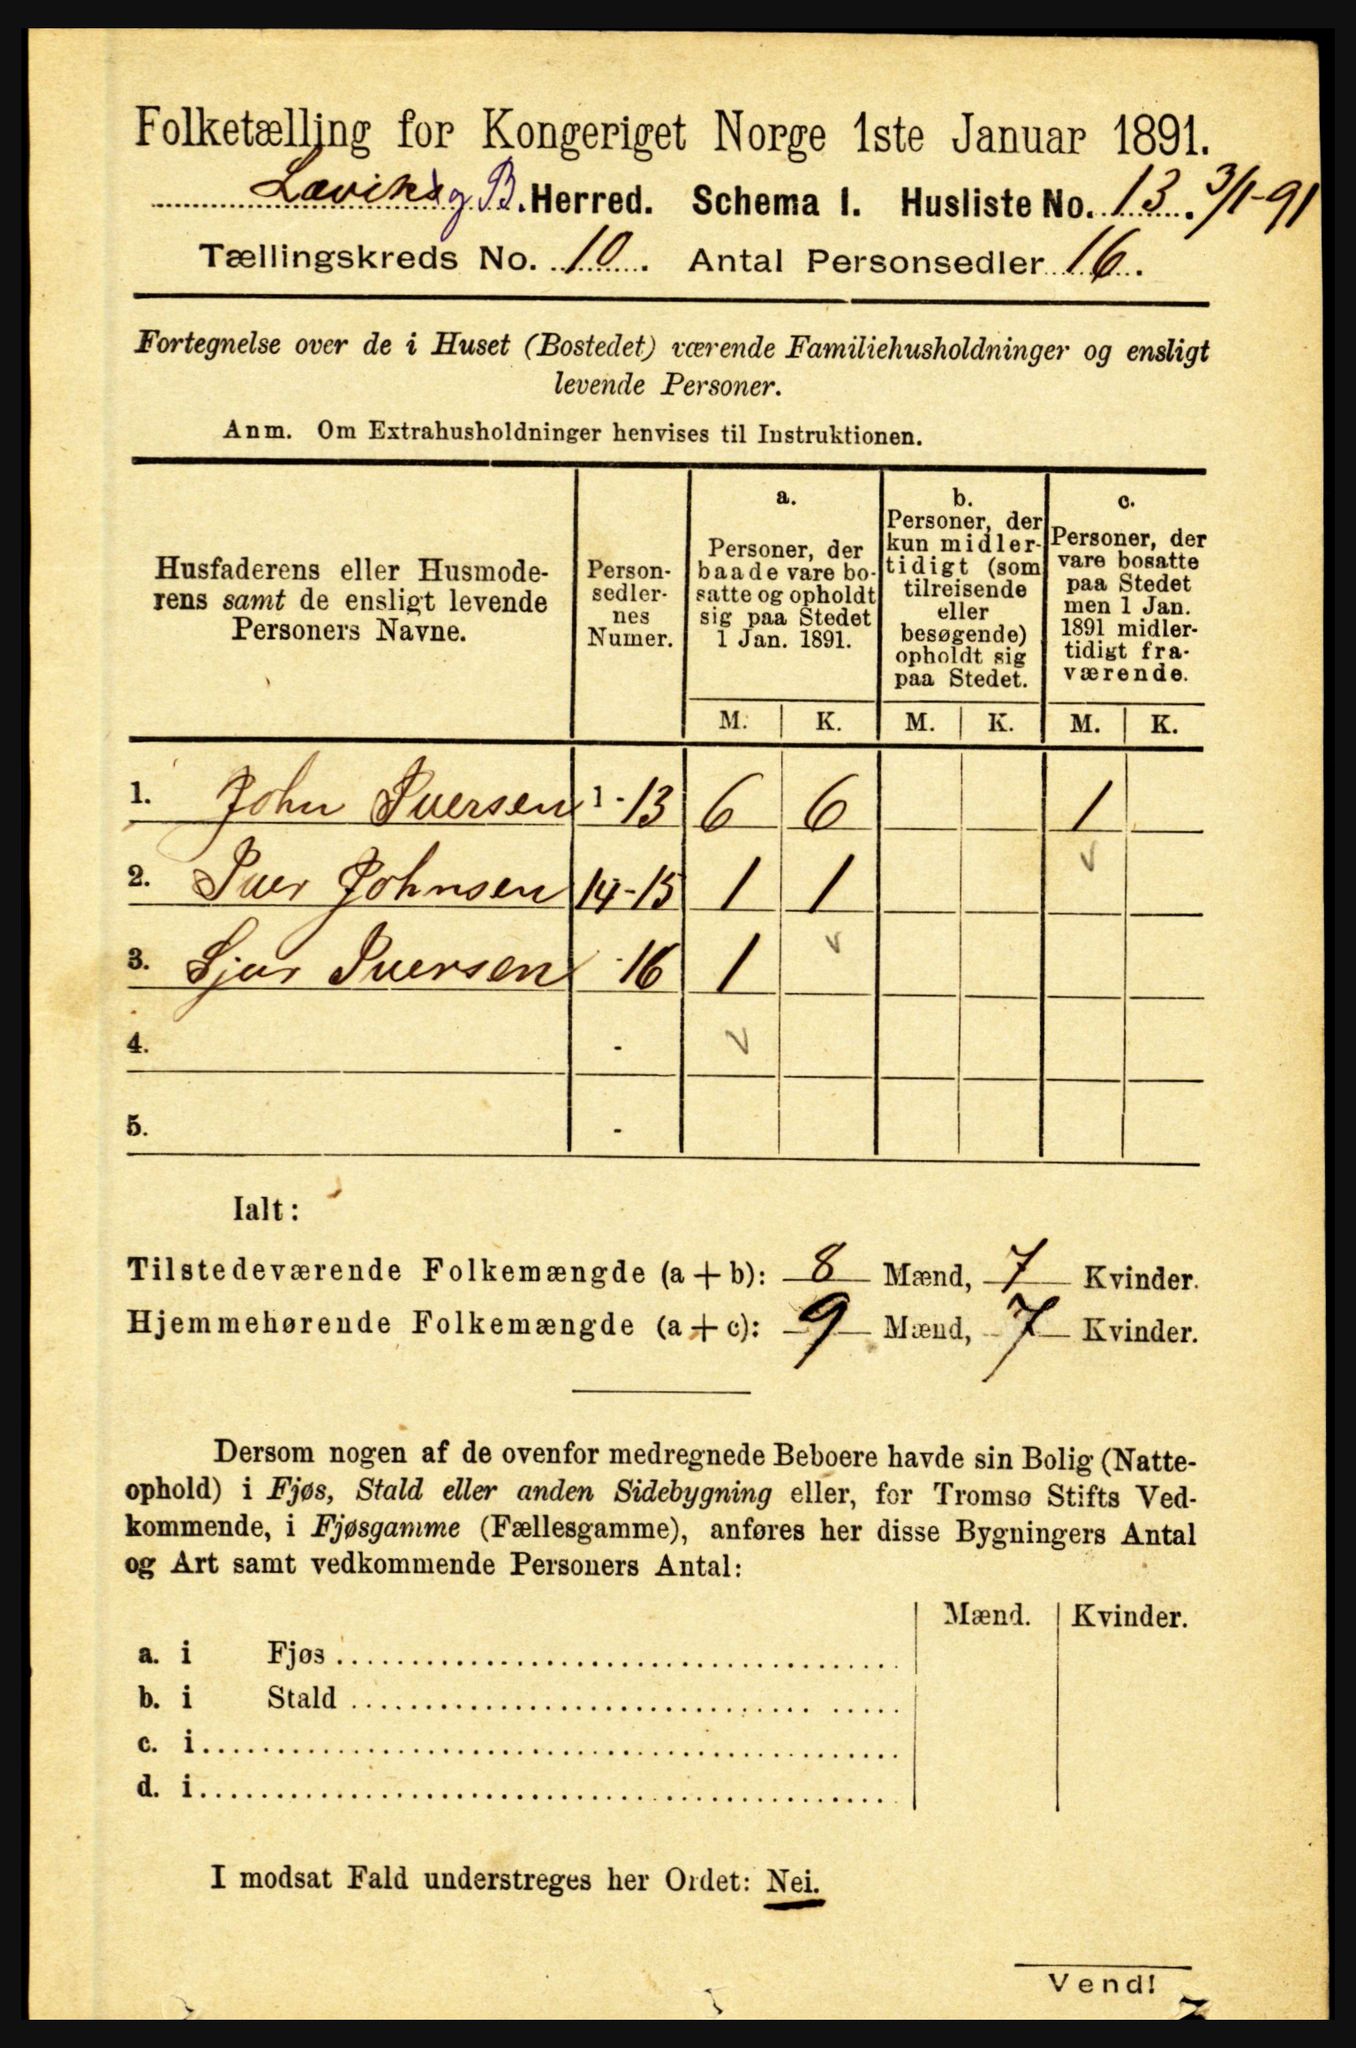 Folketælling for Kongeriget Norge 1ste Januar 1891.
Laviks og B. Herred. Schema I. Husliste No. 13. 3/1-91
Tællingskreds No. 10. Antal Personsedler 16.
Fortegnelse over de i Huset (Bostedet) værende Familiehusholdninger og ensligt
levende Personer.
Anm. Om Extrahusholdninger henvises til Instruktionen.
Husfaderens eller Husmode-
rens samt de ensligt levende
Personers Navne.
Person-
sedler-
nes
Numer.
a.
Personer, der
baade vare bo-
satte og opholdt
sig paa Stedet
1 Jan. 1891.
b.
Personer, der
kun midler-
tidigt (som
tilreisende
eller
besøgende)
opholdt sig
paa Stedet.
c.
Personer, der
vare bosatte
paa Stedet
men 1 Jan.
1891 midler-
tidigt fra-
værende.
M. K. M. K. M. K.
1. John Iversen 1-13 6 6 1
2. Iver Johnsen 14-15 1 1
3. Sjur Iversen -16 1
4. -
5. -
Ialt:
Tilstedeværende Folkemængde (a+b): 8 Mænd, 7 Kvinder.
Hjemmehørende Folkemængde (a+c): 9 Mænd, 7 Kvinder.
Dersom nogen af de ovenfor medregnede Beboere havde sin Bolig (Natte-
ophold) i Fjøs, Stald eller anden Sidebygning eller, for Tromsø Stifts Ved-
kommende, i Fjøsgamme (Fællesgamme), anføres her disse Bygningers Antal
og Art samt vedkommende Personers Antal:
Mænd. Kvinder.
a. i Fjøs
b. i Stald
c. i
d. i
I modsat Fald understreges her Ordet: Nei.
Vend!